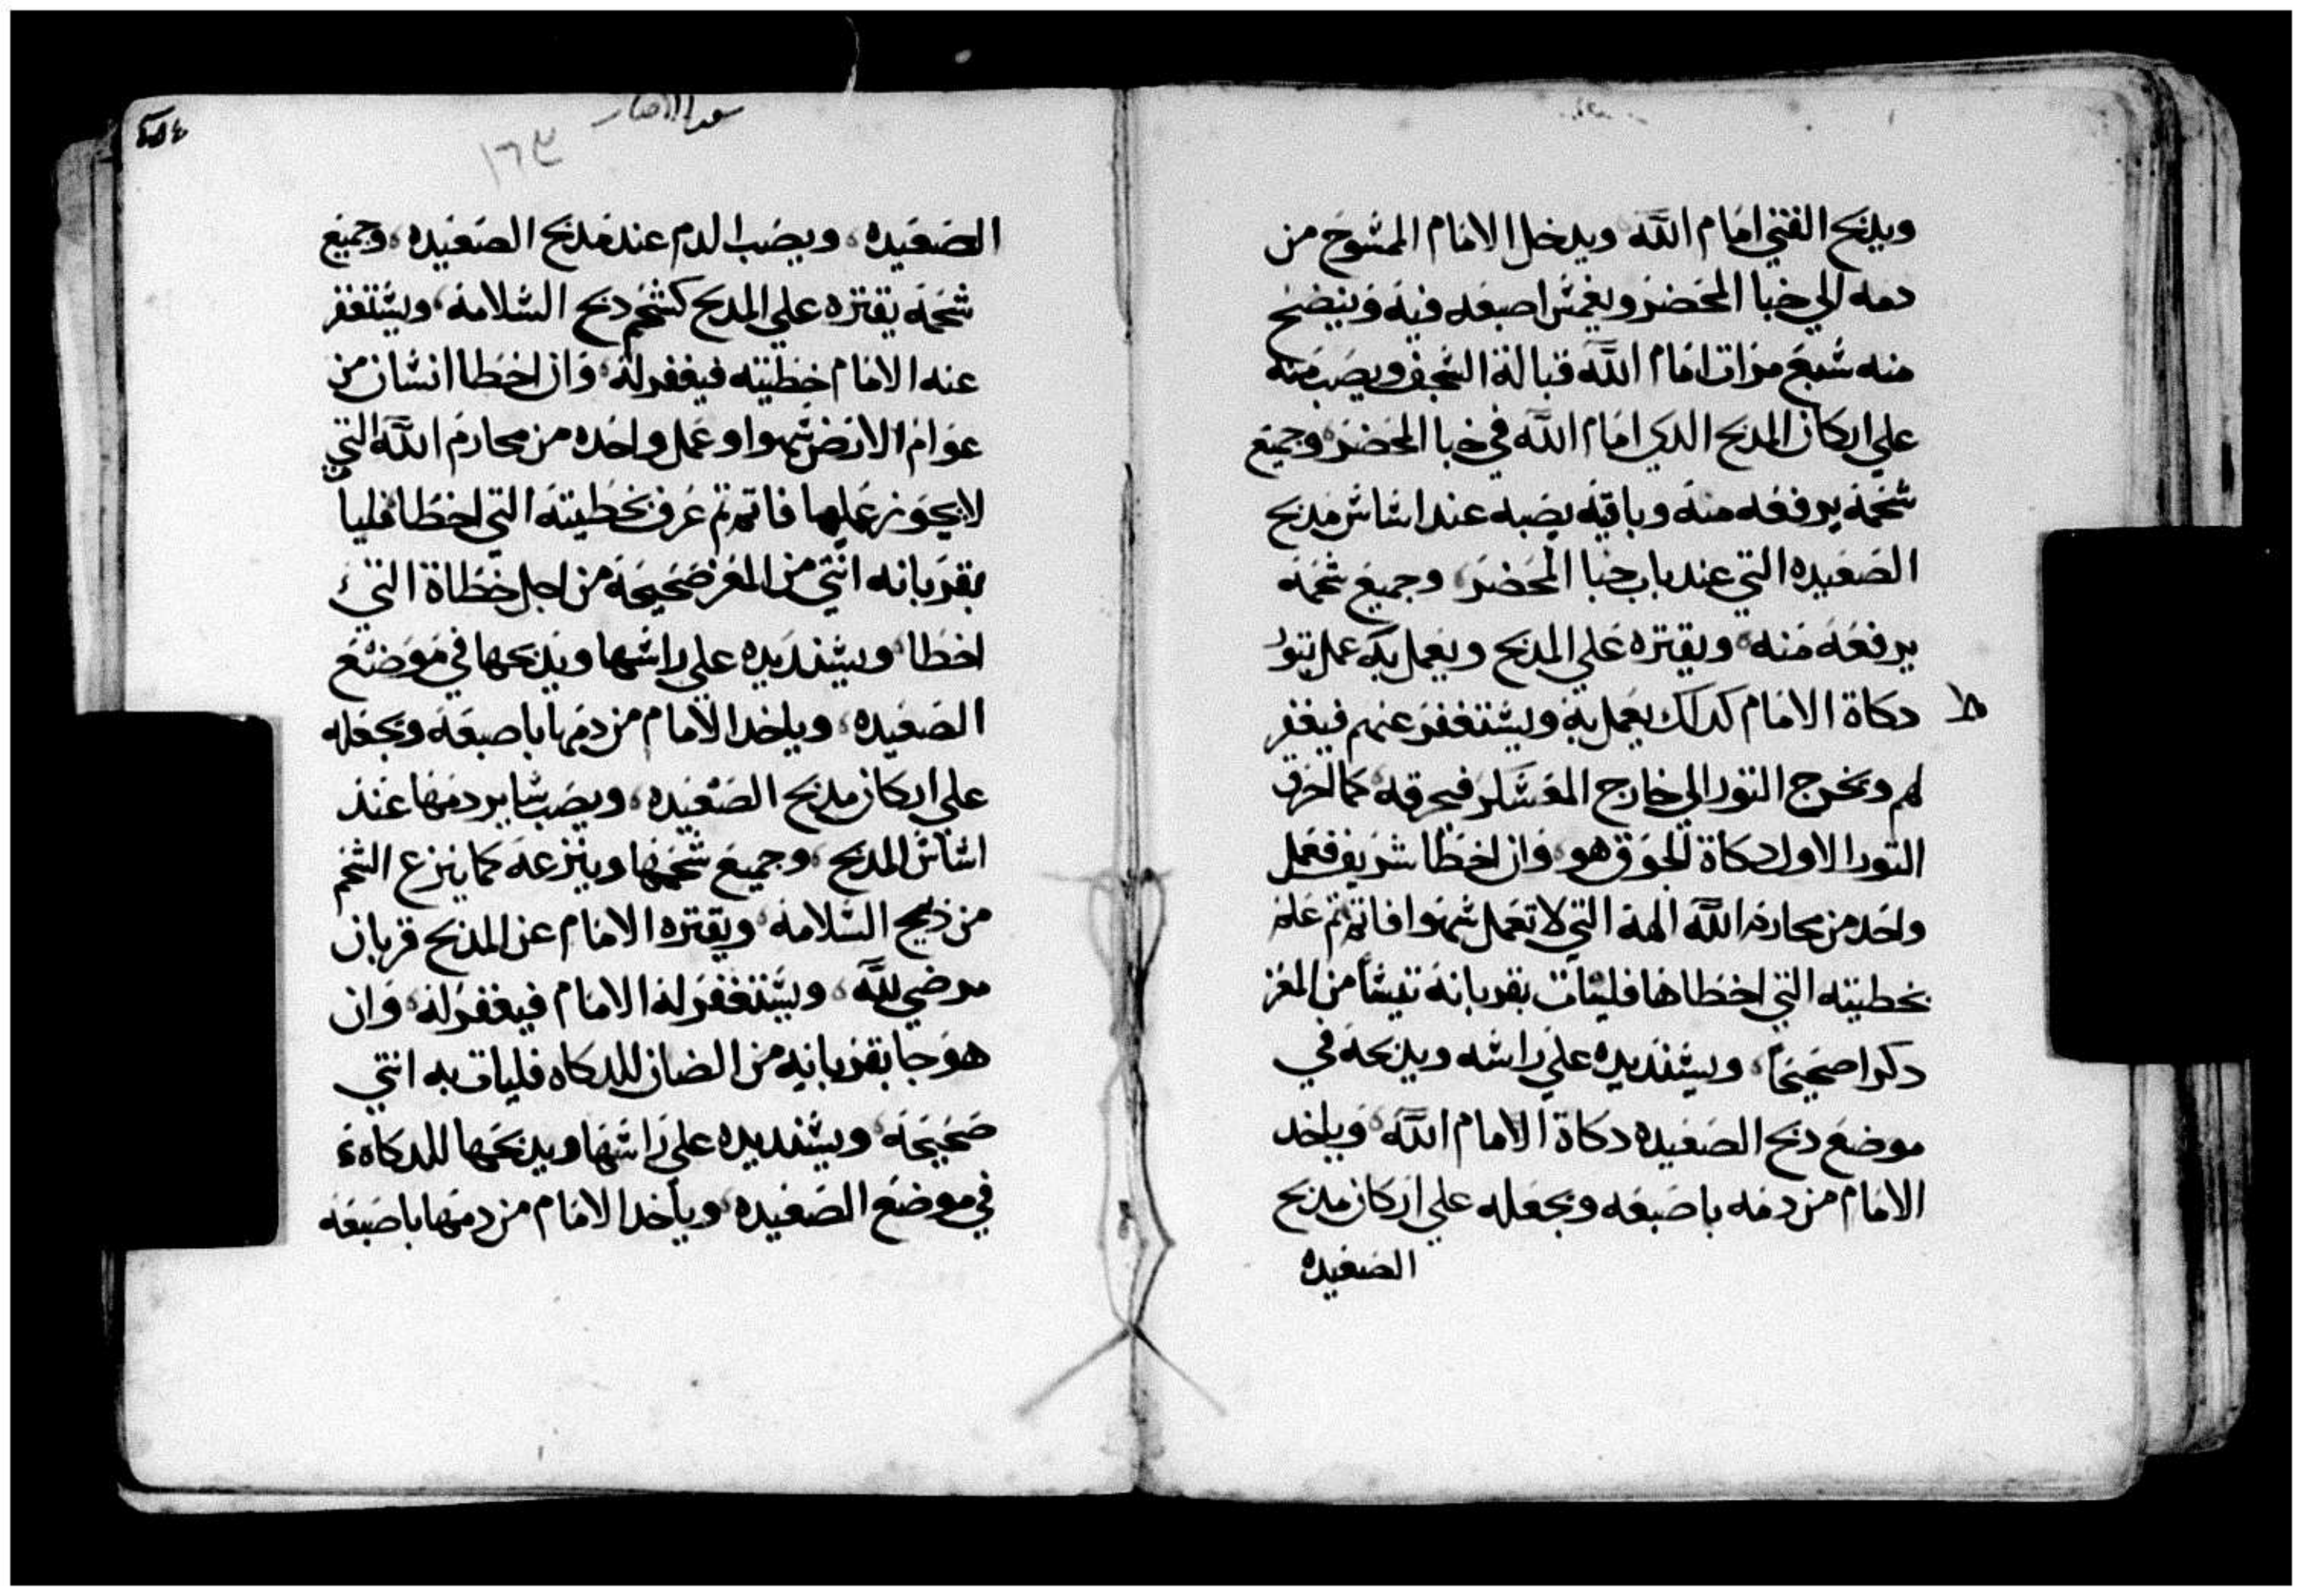 ويدبح الفتني امام الله ويدخل الامام الممسوح من
دمه الي خبا المحضر ويغمس اصبعه فيه وينضح
منه سبع مرات امام الله قبالة السجف ويصب منه
علي اركان المدبح الدي امام الله في خبا المحضر وجميع
شحمه يرفعه منه وباقيه يصبه عند اساس مدبح
الصعيده التي عند باب خبا المحضر وجميع شحمه
يرفعه منه ويقتره علي المدبح ويعمل به عمل بتور
دكاة الامام كدلك يعمل به ويستغفر عنهم فيغفر
لهم ويخرج التور الي خارج المعسكر فيحرقه كما احرق
التور الاول دكاة الجوق هو وان اخطا شريف فعمل
واحد من محارم الله الهه التي لا تعمل سهوا فاتم تم علم
بخطيته التي اخطاها فليات بقربانه تيسا من المعز
دكرا صحيحا ويسند يده علي راسه ويدبحه في
موضع دبح الصعيده دكاة الامام الله وياخد
الامام من دمه باصبعه ويجعله علي اركان مدبح
الصعيده
١٦٣
الصعيده ويصب الدم عند مدبح الصعيده وجميع
شحمه يقتره علي المدبح كشحم دبح السلامه ويستغفر
عنه الامام خطيته فيغفر له وان اخطا انسان من
عوام الارض سهوا وعمل واحده من محارم الله التي
لا يجوز عملها فاتم تم عرف بخطيته التي اخطا فليا
بقربانه انتي من المعز صحيحه من اجل خطاة التي
اخطا ويسند يده علي راسها ويدبحها في موضع
الصعيده وياخد الامام من دمها باصبعه ويجعله
علي اركان مدبح الصعيده ويصب ساير دمها عند
اساس المدبح وجميع شحمها وينزعه كما ينزع الشحم
من دبيح السلامه ويقتره الامام عن المدبح قربان
مرضي لله ويستغفر له الامام فيغفر له وان
هو جا بقربانه من الضان للدكاه فليات به انتي
صحيحه ويسند يده علي راسها ويدبحها للدكاه
في موضع الصعيده وياخد الامام من دمها باصبعه